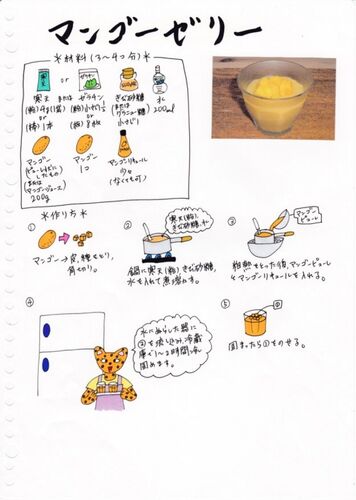 マンゴーゼリー
*材料(3〜4つ分)*
寒天 または ゼラチン
きび砂糖
または
グラニュー糖
小さじ1
水
200ml
(粉)4g(1袋)
or
(棒)1本
マンゴー
(ピューレ状にしたもの)
(または
マンゴージュース)
200g
マンゴー
1コ
マンゴーリキュール
少々
(なくても可)
*作り方*
①
マンゴー→皮、種をとり、
角切り。
②
寒天(粉)、
きび砂糖、水
鍋に寒天(粉)、きび砂糖、
水を入れて煮溶かす。
③
マンゴー
ピューレ
粗熱をとった後、マンゴーピューレ
とマンゴーリキュールを入れる。
④
水にぬらした器に
③を流し込み、冷蔵
庫で1〜2時間冷やし
固めます。
⑤
固まったら①をのせる。